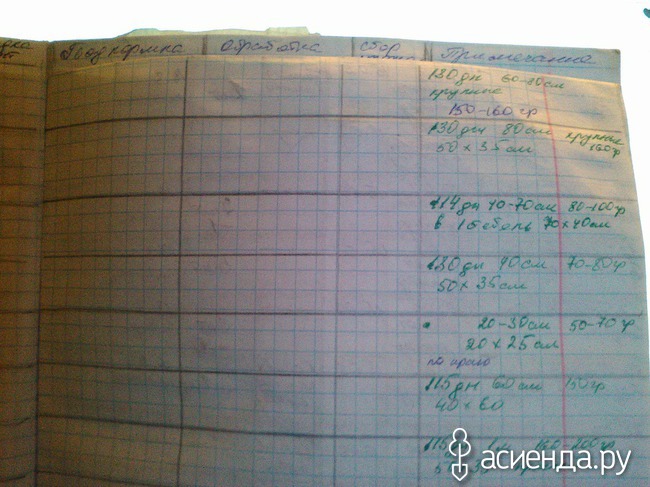 Подкормка Обработка сбор Примечание
130 дн 60-80 см
крупные
150-160 гр
130 дн 80 см крупные
50 х 35 см 160 гр
114 дн 40-70 см 80-100 гр
в 1 стебель 70 х 40 см
130 дн 90 см 70-80 гр
50 х 35 см
20-30 см 50-70 гр
20 х 25 см
по краю
115 дн 60 см 150 гр
40 х 60
115 1 м
асиенда.ру